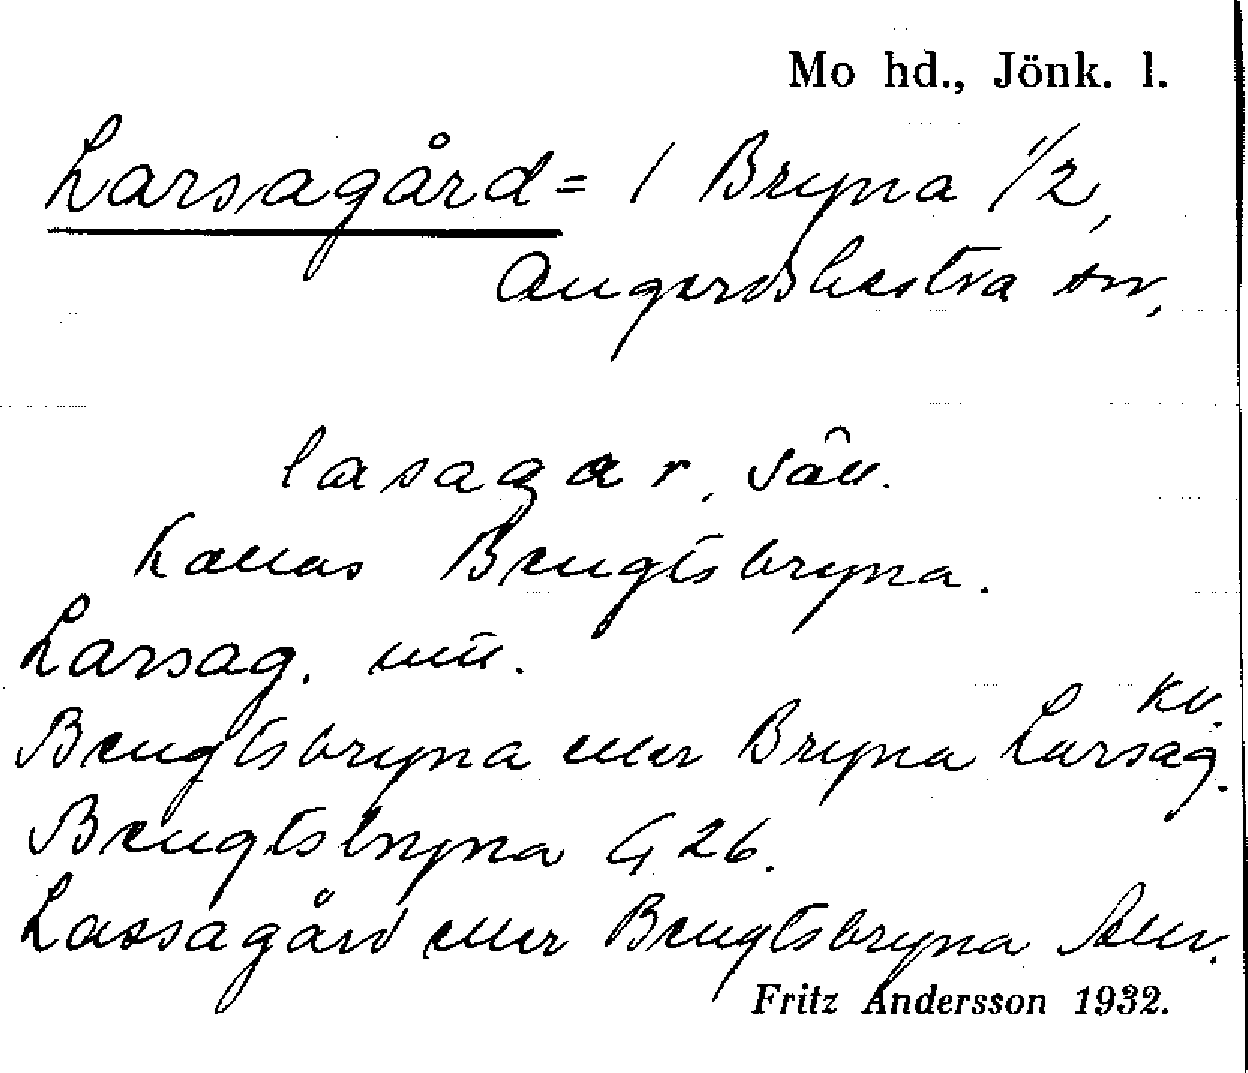 Mo hd., Jönk. l.
Larsagård = 1 Bryna 1/2,
Angerdshestra sn,
lasagar, sân.
Kallas Bengtsbryna.
Larsag.
Kv.
Bengtsbryna eller Bryna Larsag.
Bengtsbryna G 26.
Lassagård eller Bengtsbryna
Fritz Andersson 1932.